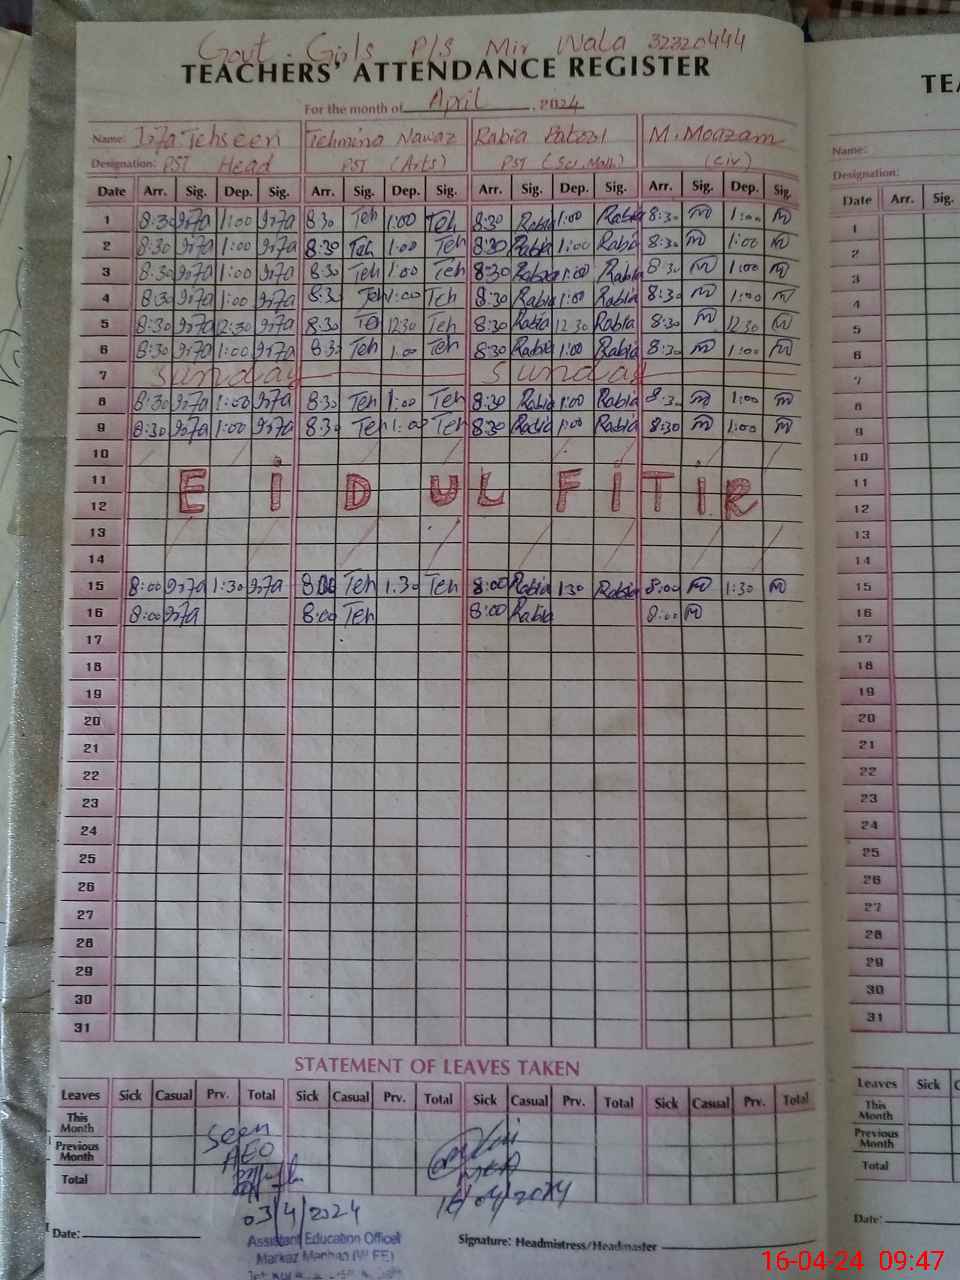 Govt. Girls P/S Mir Wala 32320444
TEACHERS' ATTENDANCE REGISTER
For the month of April, 2024
Name: Tehseen Tehmina Nawaz Rabia M. Moazam
Designation: PST Head PST (Arts) PST (Sci, Math) (Civ)
Date Arr. Sig. Dep. Sig. Arr. Sig. Dep. Sig. Arr. Sig. Dep. Sig. Arr. Sig. Dep. Sig.
1 8:30 1:00 8:30 Teh 1:00 Teh 8:30 Rabia 1:00 Rabia 8:30 m 1:00 m
2 8:30 1:00 8:30 Teh 1:00 Teh 8:30 Rabia 1:00 Rabia 8:30 m 1:00 m
3 8:30 1:00 8:30 Teh 1:00 Teh 8:30 Rabia 1:00 Rabia 8:30 m 1:00 m
4 8:30 1:00 8:30 Teh 1:00 Teh 8:30 Rabia 1:00 Rabia 8:30 m 1:00 m
5 8:30 12:30 8:30 Teh 12:30 Teh 8:30 Rabia 12:30 Rabia 8:30 m 12:30 m
6 8:30 1:00 8:30 Teh 1:00 Teh 8:30 Rabia 1:00 Rabia 8:30 m 1:00 m
7 Sunday Sunday
8 8:30 1:00 8:30 Teh 1:00 Teh 8:30 Rabia 1:00 Rabia 8:30 m 1:00 m
9 8:30 1:00 8:30 Teh 1:00 Teh 8:30 Rabia 1:00 Rabia 8:30 m 1:00 m
10
11
EiD UL FiTiR
12
13
14
15 8:00 1:30 8:00 Teh 1:30 Teh 8:00 Rabia 1:30 Rabia 8:00 m 1:30 m
16 8:00 8:00 Teh 8:00 Rabia 8:00 m
17
18
19
20
21
22
23
24
25
26
27
28
29
30
31
STATEMENT OF LEAVES TAKEN
Leaves Sick Casual Prv. Total Sick Casual Prv. Total Sick Casual Prv. Total Sick Casual Prv. Total
This Month
Previous Month
Total
Seen
AEO
MEA
03/4/2024
16/04/2024
Date:
Assistant Education Officer
Signature: Headmistress/Headmaster
TEA
Name:
Designation:
Date Arr. Sig.
1
2
3
4
5
6
7
8
9
10
11
12
13
14
15
16
17
18
19
20
21
22
23
24
25
26
27
28
29
30
31
Leaves Sick C
This Month
Previous Month
Total
Date:
16-04-24 09:47